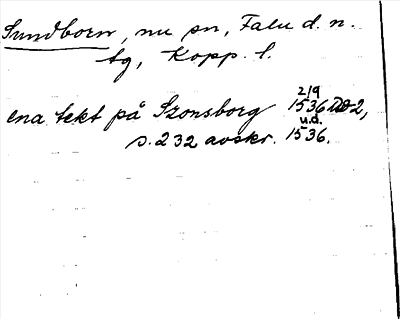 Sundborn, nu sn, Falu d. n.
tg, Kopp. l.
ena tekt på Szonsborg 2/9 1536 DD 2,
s. 232 avskr. u.d. 1536.